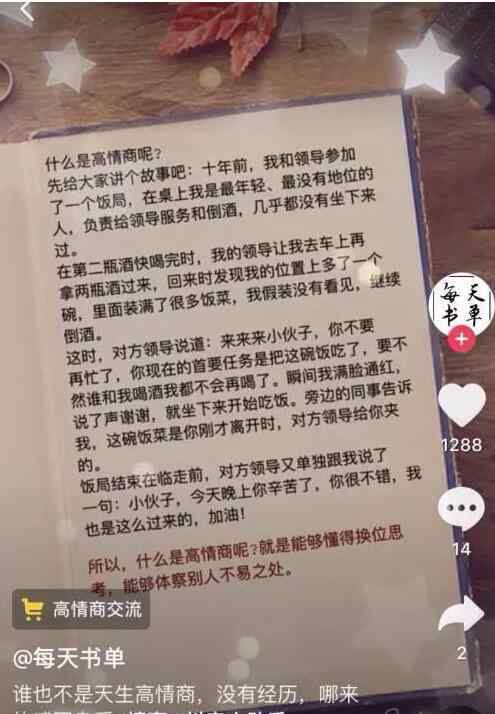 什么是高情商呢?
先给大家讲个故事吧：十年前，我和领导参加
了一个饭局，在桌上我是最年轻、最没有地位的
人，负责给领导服务和倒酒，几乎都没有坐下来
过。
在第二瓶酒快喝完时，我的领导让我去车上再
拿两瓶酒过来，回来时发现我的位置上多了一个
碗，里面装满了很多饭菜，我假装没有看见，继续
倒酒。
这时，对方领导说道：来来来小伙子，你不要
再忙了，你现在的首要任务是把这碗饭吃了，要不
然谁和我喝酒我都不会再喝了。瞬间我满脸通红，
说了声谢谢，就坐下来开始吃饭。旁边的同事告诉
我，这碗饭菜是你刚才离开时，对方领导给你夹
的。
饭局结束在临走前，对方领导又单独跟我说了
一句：小伙子，今天晚上你辛苦了，你很不错，我
也是这么过来的，加油!
所以，什么是高情商呢?就是能够懂得换位思
考，能够体察别人不易之处。
每天
书单
1288
14
2
高情商交流
@每天书单
谁也不是天生高情商，没有经历，哪来